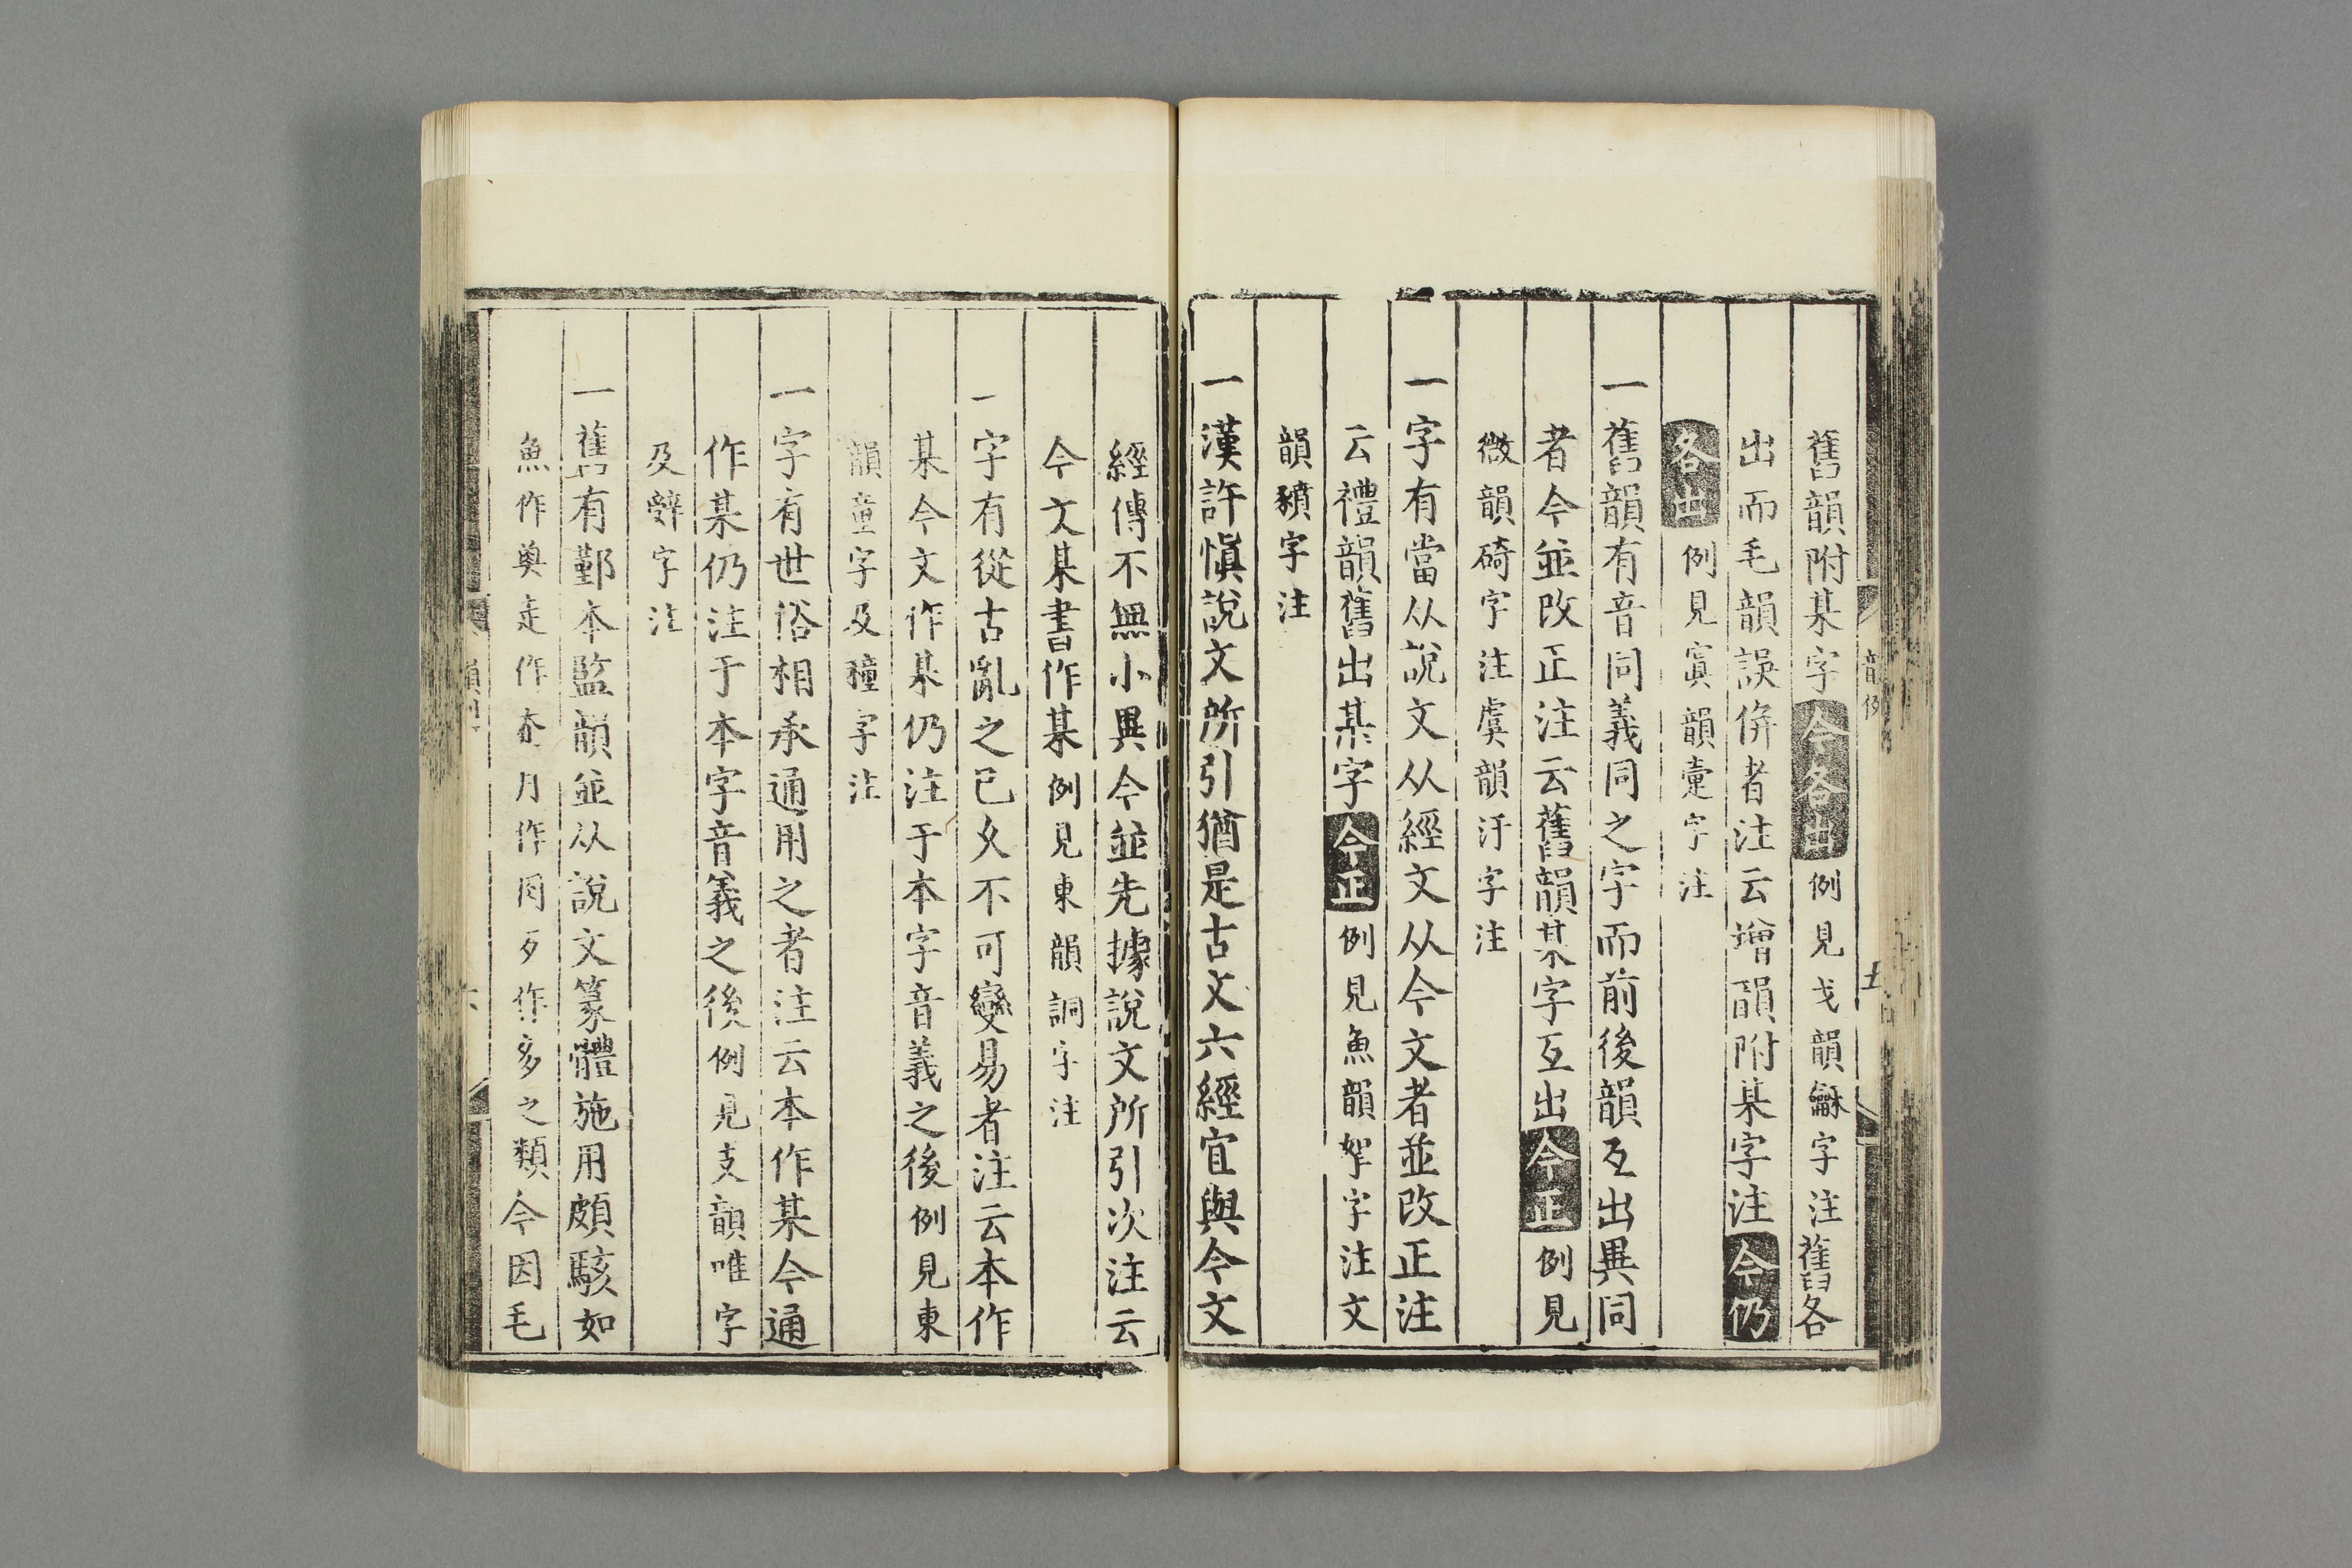 舊韻附某字今各出例見戈韻龢字注舊各
出而毛韻誤併者注云增韻附某字注今仍
各出例見寘韻惠字注
一舊韻有音同義同之字而前後韻互出異同
者今並改正注云舊韻某字互出今正例見
微韻碕字注虞韻汙字注
一字有當从說文从經文从今文者並改正注
云禮韻舊出某字今正例見魚韻帤字注文
韻豶字注
一漢許愼說文所引猶是古文六經宜與今文
韻例
五
經傳不無小異今並先據說文所引次注云
今文某書作某例見東韻詞字注
一字有從古亂之已久不可變易者注云本作
某今文作某仍注于本字音義之後例見東
韻童字及穜字注
一字有世俗相承通用之者注云本作某今通
作某仍注于本字音義之後例見支韻唯字
及辤字注
一舊有鄞本監韻並从說文篆體施用頗駭如
魚作𩵋走作𡗜月作⺼歹作歺之類今因毛
六